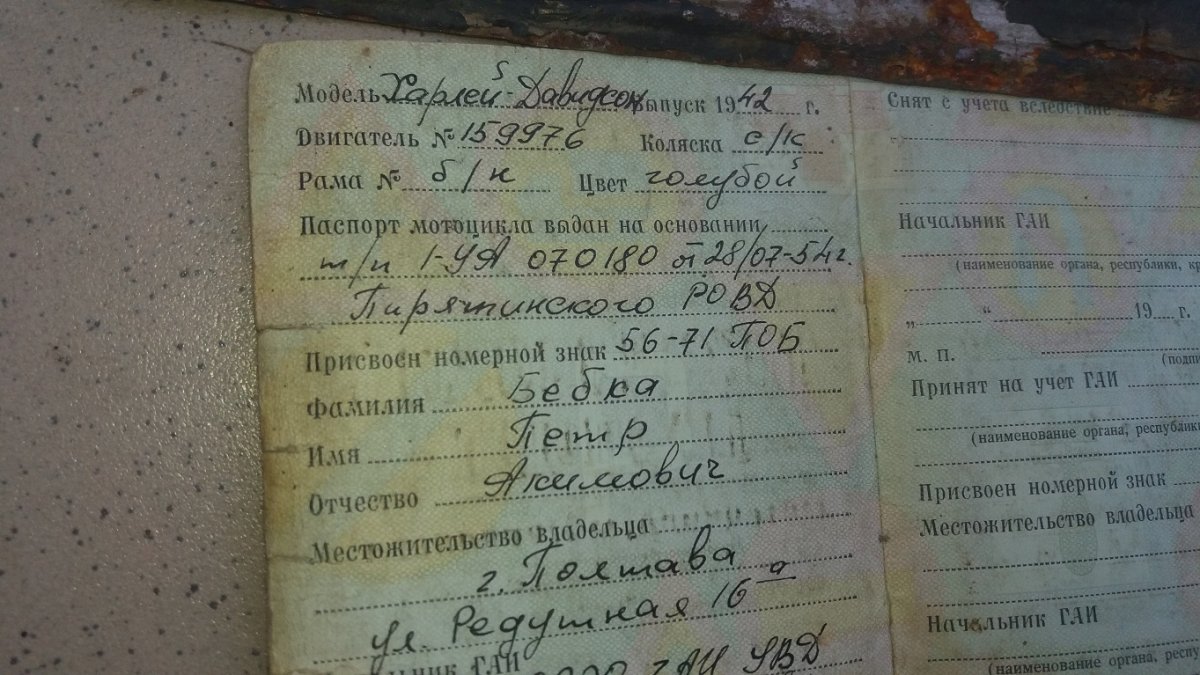 Модель Харлей-Давидсон выпуск 1942 г.
Двигатель № 159976 Коляска с/к
Рама № б/н Цвет голубой
Паспорт мотоцикла выдан на основании
т/п 1-УА 070180 от 28/07-54 г.
Пирятинского РОВД
Присвоен номерной знак 56-71 ПОБ
Фамилия Бебка
Имя Петр
Отчество Акимович
Местожительство владельца
г. Полтава
ул. Редутная 16 а
ГАИ
ГАИ УВД
Снят с учета вследствие
Начальник ГАИ
(наименование органа, республики,
„ “ 19 г.
М. П.
Принят на учет ГАИ
(наименование органа, республики
Присвоен номерной знак
Местожительство владельца
Начальник ГАИ
(наименование органа,